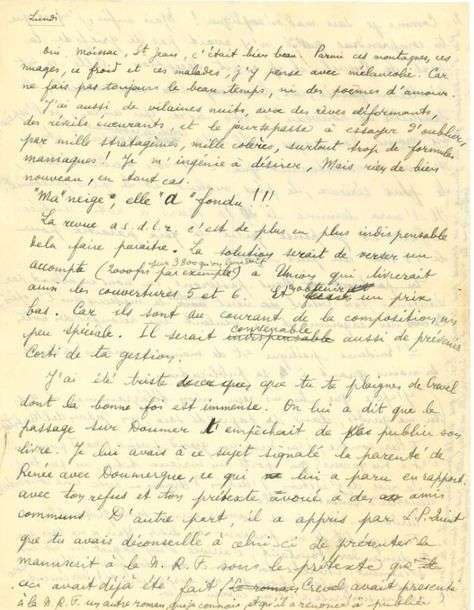 Lundi
Oui Moissac, St Jean, c'était bien beau. Parmi ces montagnes, ces
nuages, ce froid et ces malades, j'y pense avec mélancolie. Car
ne fais pas toujours le beau temps, ni des poèmes d'amour.
J'ai aussi de vilaines nuits, avec des rêves déformants,
des réveils écœurants, et le jour se passe à essayer d'oublier
par mille stratagèmes, mille colères, surtout trop de formules
manquées! Je m'ingénie à désirer, Mais rien de bien
nouveau, en tout cas.
"Ma" neige, elle "a" fondu!!!
La revue a.s.d.l.r. c'est de plus en plus indispensable
de la faire paraître. La solution serait de verser un
sur 3800 qu'on
accompte (2000frs par exemple) à Union qui livrerait
ainsi les couvertures 5 et 6. Et obtenir un prix
bas. Car ils sont au courant de la composition, un
peu spéciale. Il serait convenable indispensable aussi de prévenir
Corti de ta gestion.
J'ai été triste que tu te plaignes de Crevel
dont la bonne foi est immense. On lui a dit que le
passage sur Doumer t'empêchait de publier son
livre. Je lui avais à ce sujet signalé la parenté de
Renée avec Doumergue, ce qui lui a paru en rapport
avec ton refus et ton prétexte à des amis
communs. D'autre part, il a appris par L.P. Quint
que tu avais déconseillé à celui-ci de présenter le
manuscrit à la N.R.F. sous le prétexte que
ceci avait déjà été fait (Le roman Crevel avait présenté
à la N.R.F. un autre roman, que je connais, et qu'il a renoncé à publier)